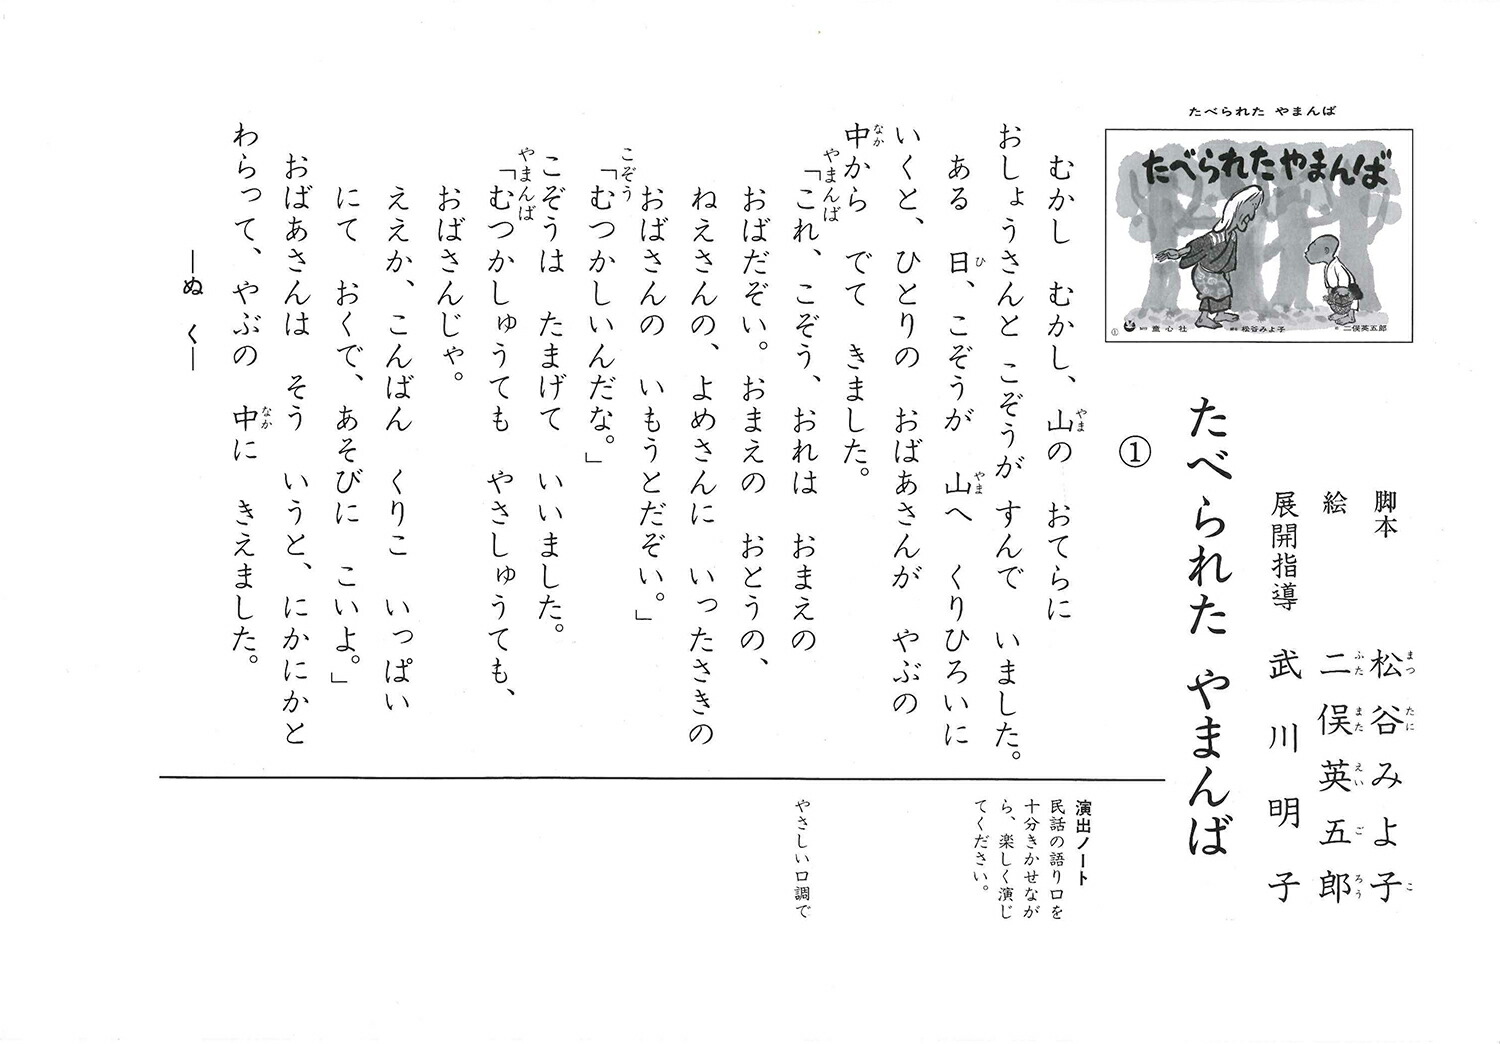 たべられた やまんば
たべられたやまんば
① 童心社 松谷みよ子 二俣英五郎
脚本 松谷みよ子
まつ たに こ
絵 二俣英五郎
ふた また えい ご ろう
展開指導 武川明子
たべられた やまんば
①
むかし むかし、山の おてらに
やま
おしょうさんと こぞうが すんで いました。
ある 日、こぞうが 山へ くりひろいに
ひ やま
いくと、ひとりの おばあさんが やぶの
中から でて きました。
なか
やまんば
「これ、こぞう、おれは おまえの
おばだぞい。おまえの おとうの、
ねえさんの、よめさんに いったさきの
おばさんの いもうとだぞい。」
こぞう
「むつかしいんだな。」
こぞうは たまげて いいました。
やまんば
「むつかしゅうても やさしゅうても、
おばさんじゃ。
ええか、こんばん くりこ いっぱい
にて おくで、あそびに こいよ。」
おばあさんは そう いうと、にかにかと
わらって、やぶの 中に きえました。
なか
―ぬ く―
演出ノート
民話の語り口を
十分きかせなが
ら、楽しく演じ
てください。
やさしい口調で